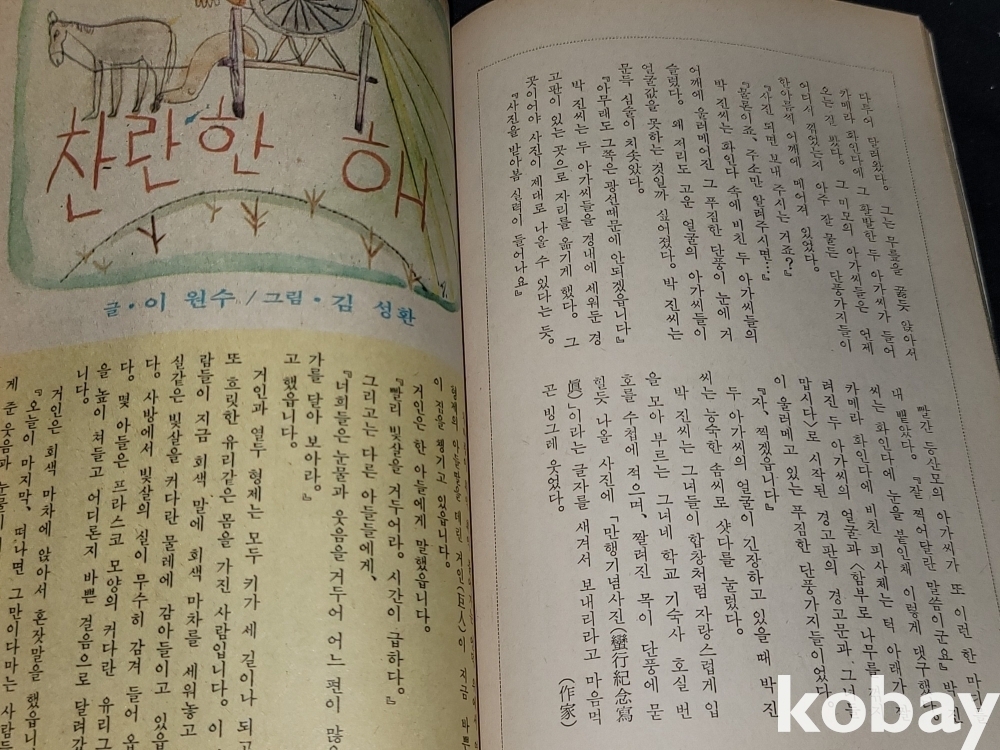 다투어 달려왔다. 그는 무릎을 꿇듯 앉아서
카메라 화인다에 활발한 두 아가씨가 들어
오는 걸 봤다. 그 미모의 아가씨들은 언제
어디서 꺾었는지 아주 잘 물든 단풍가지들이
한아름씩 어깨에 메어져 있었다.
『사진 되면 보내 주시는 거죠?』
『물론이죠 주소만 알려주시면…』
박 진씨는 화인다 속에 비친 두 아가씨들의
어깨에 울러메어진 그 푸짐한 단풍이 눈에 거
슬렸다. 왜 저리도 고운 얼굴의 아가씨들이
얼굴값을 못하는 것일까 싶어졌다. 박 진씨는
문득 심술이 치솟았다.
『아무래도 그쪽은 광선때문에 안되겠읍니다』
박 진씨는 두 아가씨들을 경내에 세워둔 경
고판이 있는 곳으로 자리를 옮기게 했다. 그
곳이어야 사진이 제대로 나올 수 있다는 듯.
『사진을 받아봄 실력이 들어나요』
빨간 등산모의 아가씨가 또 이런 한 마디
내 뱉았다. 『잘 찍어달란 말씀이군요』 박
씨는 화인다에 눈을 붙인채 이렇게 댓구했
카메라 화인다에 비친 피사체는 턱 아래가
려진 두 아가씨의 얼굴과 <함부로 나무를
맙시다>로 시작된 경고판의 경고문과 그녀들
이 울러메고 있는 푸짐한 단풍가지들이었다
『자, 찍겠읍니다』
두 아가씨의 얼굴이 긴장하고 있을 때 박 진
씨는 능숙한 솜씨로 샷다를 눌렀다.
박 진씨는 그녀들이 합창처럼 자랑스럽게 입
을 모아 부르는 그녀네 학교 기숙사 호실 번
호를 수첩에 적으며, 짤려진 목이 단풍에 묻
힐듯 나올 사진에 「만행기념사진(蠻行紀念寫
眞)」이라는 글자를 새겨서 보내리라고 마음먹
곤 빙그레 웃었다.
(作家)
찬란한 해
글・이 원수/그림・김 성환
이 짐을 챙기고 있읍니다.
거인은 한 아들에게 말했읍니다.
『빨리 빛살을 거두어라. 시간이 급하다.』
그리고는 다른 아들들에게,
『너희들은 눈물과 웃음을 거두어 어느 편이 많은
가를 달아 보아라.』
고 했읍니다.
거인과 열두 형제는 모두 키가 세 길이나 되고
또 흐릿한 유리같은 몸을 가진 사람입니다. 이
람들이 지금 회색 말에 회색 마차를 세워놓고
실같은 빛살을 커다란 물레에 감아들이고 있
다. 사방에서 빛살의 실이 무수히 감겨 들어
다. 몇 아들은 프라스코 모양의 커다란 유리그
을 높이 쳐들고 어디론지 바쁜 걸음으로 달려갑
니다.
거인은 회색 마차에 앉아서 혼잣말을 했읍니
『오늘이 마지막, 떠나면 그만이다마는 사람들
게 준 웃음과 눈물이
kobay